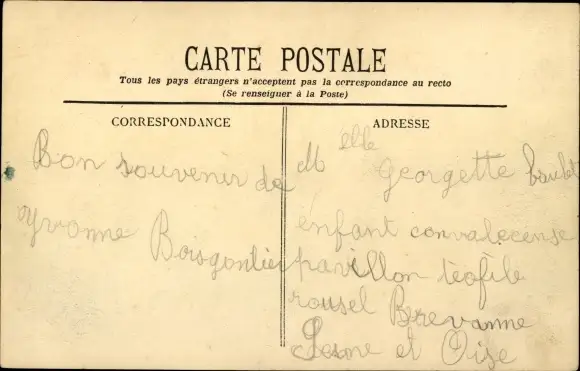 CARTE POSTALE
Tous les pays étrangers n'acceptent pas la correspondance au recto
(Se renseigner à la Poste)
CORRESPONDANCE
Bon souvenir de
yvonne Boisgontier
ADRESSE
M elle Georgette
enfant convalecense
pavillon téofile
rousel Brevanne
Sesne et Oise